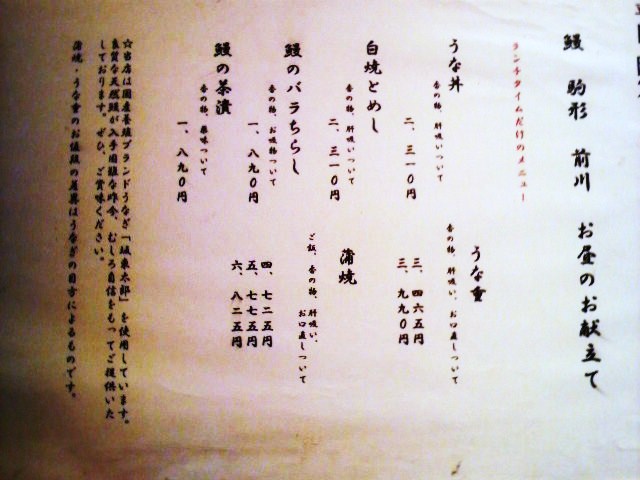 鰻 駒形 前川 お昼のお献立て
ランチタイムだけのメニュー
うな丼
香の物、肝吸いついて
二、三一〇円
うな重
香の物、肝吸い、お口直しついて
三、四六五円
三、九九〇円
白焼とめし
香の物、肝吸いついて
二、三一〇円
蒲焼
ご飯、香の物、肝吸い、
お口直しついて
四、七二五円
五、七七五円
六、八二五円
鰻のバラちらし
香の物、お吸物ついて
一、八九〇円
鰻の茶漬
香の物、薬味ついて
一、八九〇円
☆当店は国産養殖ブランドうなぎ「坂東太郎」を使用しています。
良質な天然鰻が入手困難な昨今、むしろ自信をもってご提供いた
しております。ぜひ、ご賞味ください。
蒲焼・うな重のお値段の差異はうなぎの目方によるものです。